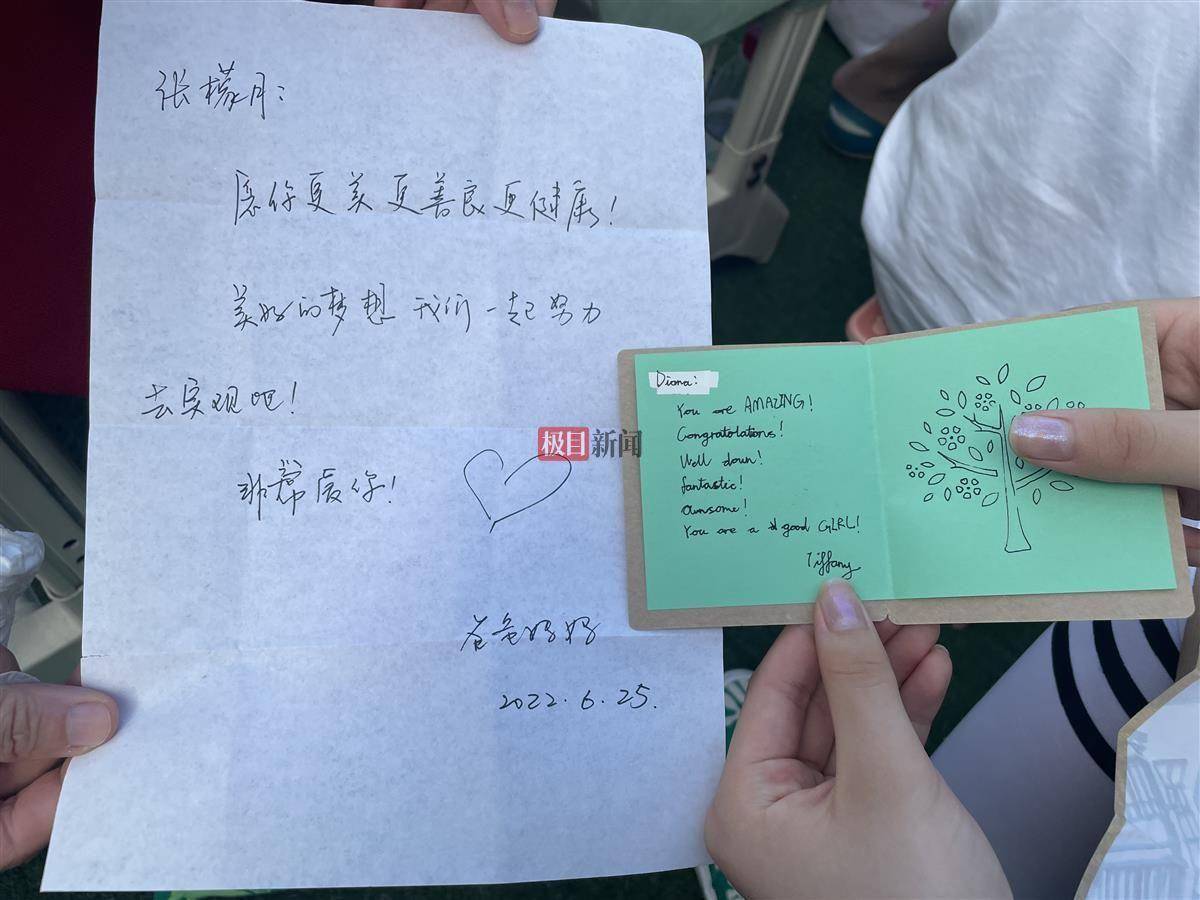 张檬月:
愿你更美更善良更健康!
美好的梦想 我们一起努力
去实现吧!
非常爱你!
爸爸妈妈
2022.6.25.
极目新闻
Diana:
You are AMAZING!
Congratolations!
Well down!
fantastic!
awnsome!
You are a good GIRL!
Tiffany